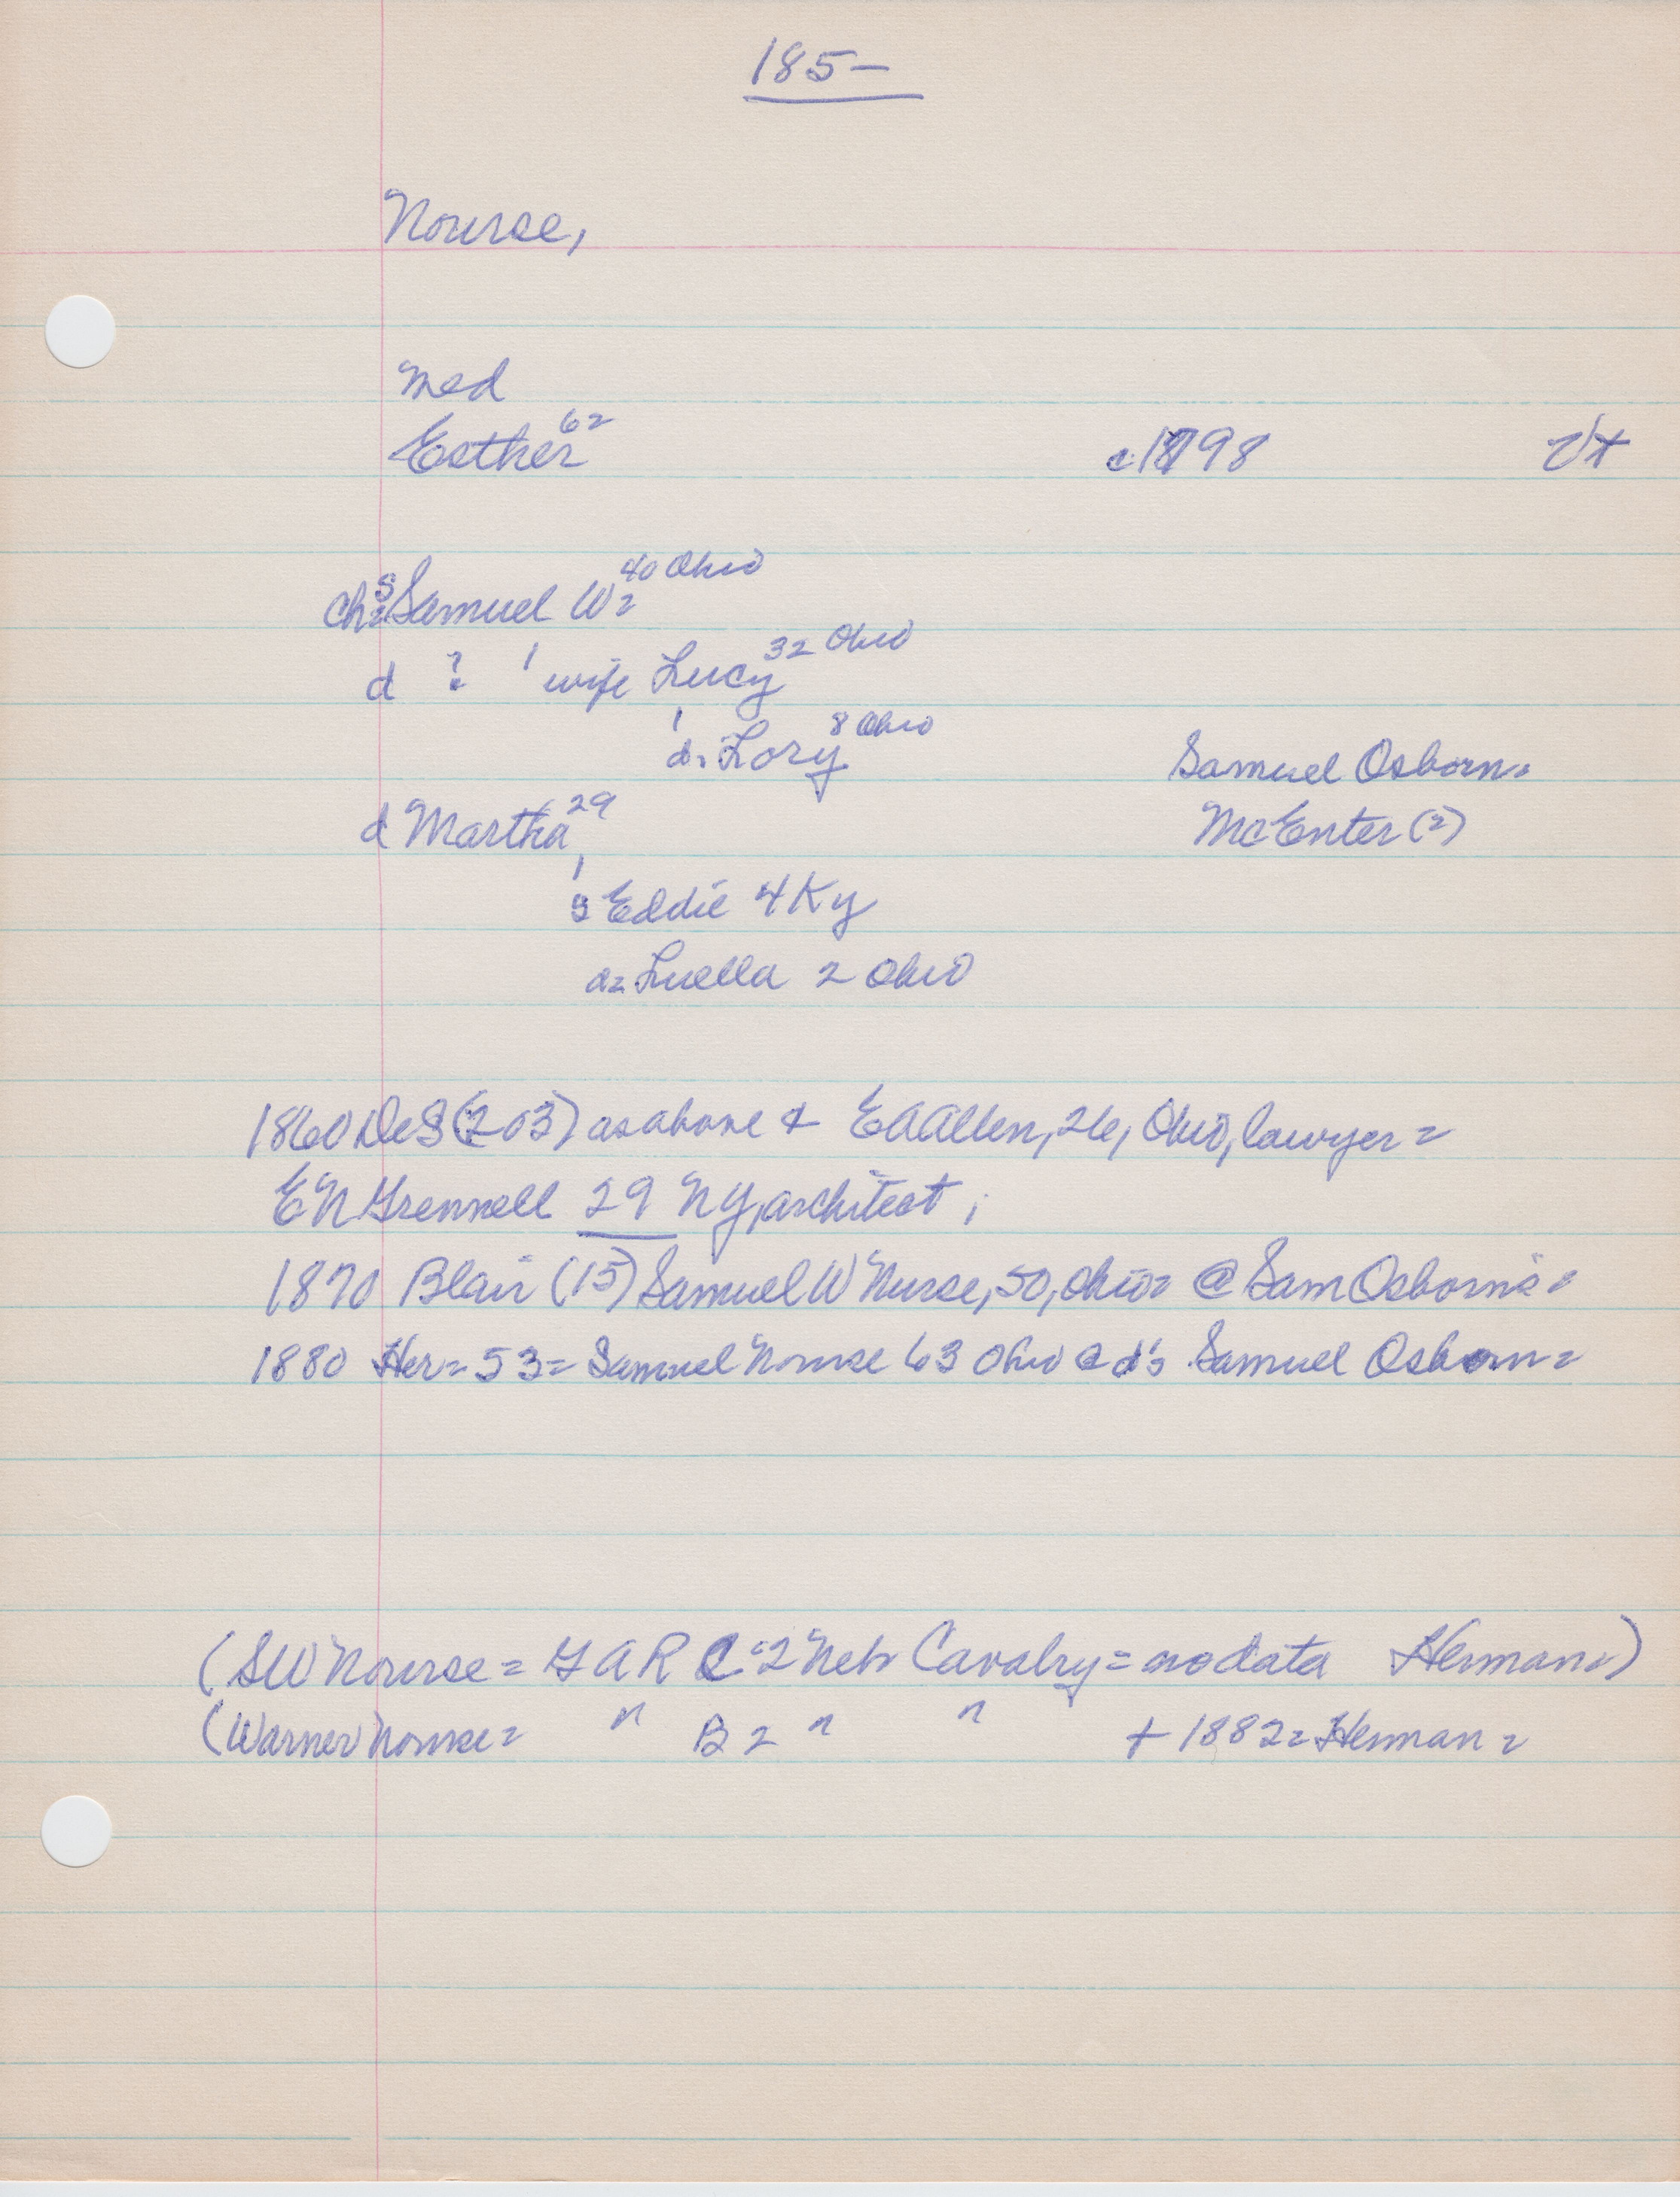 185-
Nourse,
med
Esther 62 c.1798 Vt
ch= s Samuel W= 40 Ohio
d ? ' wife Lucy 32 Ohio
d. Lory 8 Ohio
Samuel Osborn=
d Martha 29 McEnter (2)
s Eddie 4 Ky
d= Luella 2 Ohio
1860 DeS (203) as above & E A Allen, 26, Ohio, lawyer=
E N Grennell 29 NY, architect;
1870 Blair (15) Samuel W Nurse, 50, Ohio= @ Sam Osborn's=
1880 Her= 53= Samuel Nourse 63 Ohio @ d's Samuel Osborn=
(SW Nourse= G A R C 2 Neb Cavalry= no data Herman=)
(Warner Nourse= " B 2 " " + 1882= Herman=